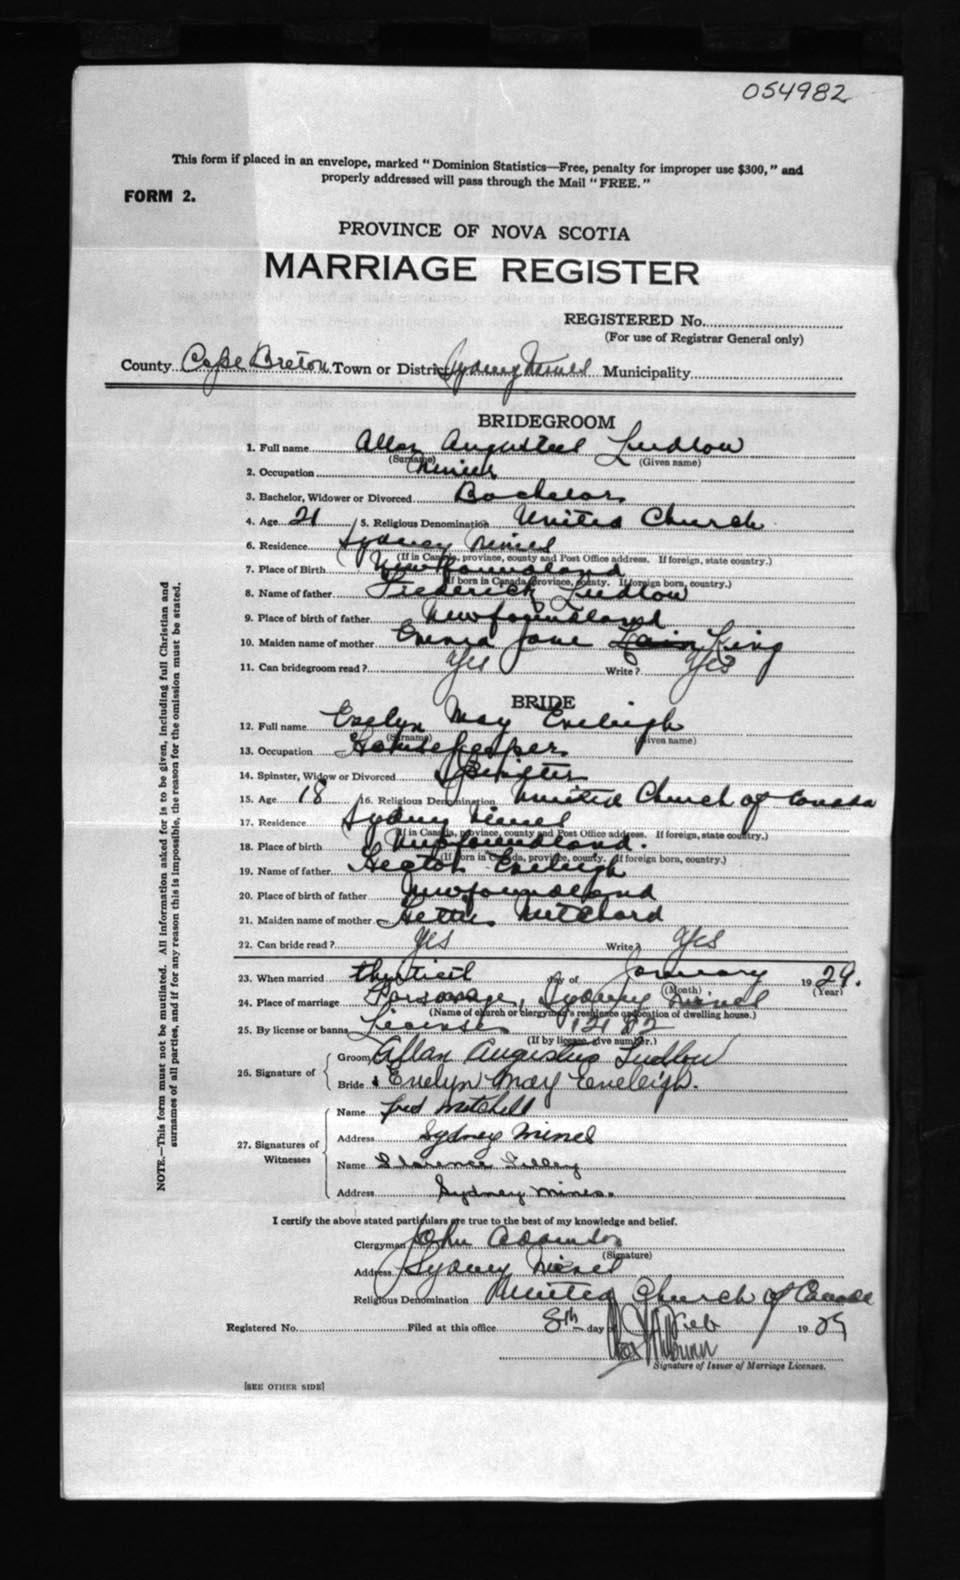 054982
This form if placed in an envelope, marked "Dominion Statistics—Free, penalty for improper use $300," and
properly addressed will pass through the Mail "FREE."
FORM 2.
PROVINCE OF NOVA SCOTIA
MARRIAGE REGISTER
REGISTERED No.
(For use of Registrar General only)
County Cape Breton Town or District Sydney Mines Municipality
BRIDEGROOM
1. Full name Allan Augustus Ludlow
(Surname) (Given name)
2. Occupation Miner
3. Bachelor, Widower or Divorced Bachelor
4. Age 21 5. Religious Denomination United Church
6. Residence Sydney Mines
(If in Canada, province, county and Post Office address. If foreign, state country.)
7. Place of Birth Newfoundland
(If born in Canada, province, county. If foreign born, country.)
8. Name of father Frederick Ludlow
9. Place of birth of father Newfoundland
10. Maiden name of mother Emma Jane King
11. Can bridegroom read? Yes Write? Yes
BRIDE
12. Full name Evelyn May Eveleigh
(Surname) (Given name)
13. Occupation Housekeeper
14. Spinster, Widow or Divorced Spinster
15. Age 18 16. Religious Denomination United Church of Canada
17. Residence Sydney Mines
(If in Canada, province, county and Post Office address. If foreign, state country.)
18. Place of birth Newfoundland.
(If born in Canada, province, county. If foreign born, country.)
19. Name of father Hector Eveleigh
20. Place of birth of father Newfoundland
21. Maiden name of mother Hettie Mitchard
22. Can bride read? Yes Write? Yes
23. When married thirtieth day of January 1929.
(Month) (Year)
24. Place of marriage Parsonage, Sydney Mines
(Name of church or clergyman's residence or location of dwelling house.)
25. By license or banns License 12182
(If by license, give number.)
26. Signature of
Groom Allan Augustus Ludlow
Bride Evelyn May Eveleigh.
27. Signatures of Witnesses
Name Fred Mitchell
Address Sydney Mines
Name Florence Lilley
Address Sydney Mines.
I certify the above stated particulars are true to the best of my knowledge and belief.
Clergyman John Adamson
(Signature)
Address Sydney Mines
Religious Denomination United Church of Canada
Registered No. Filed at this office 8th day of Feb 1929
Signature of Issuer of Marriage Licenses.
[SEE OTHER SIDE]
NOTE.—This form must not be mutilated. All information asked for is to be given, including full Christian and
surnames of all parties, and if for any reason this is impossible, the reason for the omission must be stated.